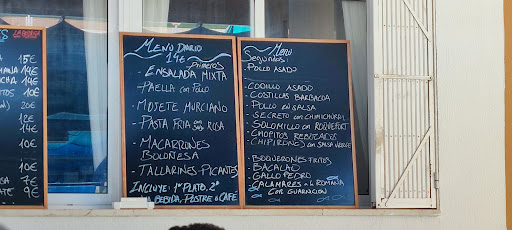 LA
14€
14€
14€
10€
10€
12€
14€
10€
15€
9€
7€
MENÚ DIARIO
14€
PRIMEROS
- ENSALADA MIXTA
- PAELLA CON POLLO
- MOJETE MURCIANO
- PASTA FRIA CON SALSA ROSA
- MACARRONES
BOLOÑESA
- TALLARINES PICANTES
INCLUYE: 1º PLATO, 2º
BEBIDA, POSTRE o CAFE
MENÚ
SEGUNDOS:
- POLLO ASADO
- CODILLO ASADO
- COSTILLAS BARBACOA
- POLLO EN SALSA
- SECRETO CON CHIMICHURRI
- SOLOMILLO CON ROQUEFORT
- CHOPITOS REBOZADOS
- CHIPIRONES CON SALSA VERDE
- BOQUERONES FRITOS
- BACALAO
- GALLO PEDRO
- CALAMARES A LA ROMANA
CON GUARNICIÓN